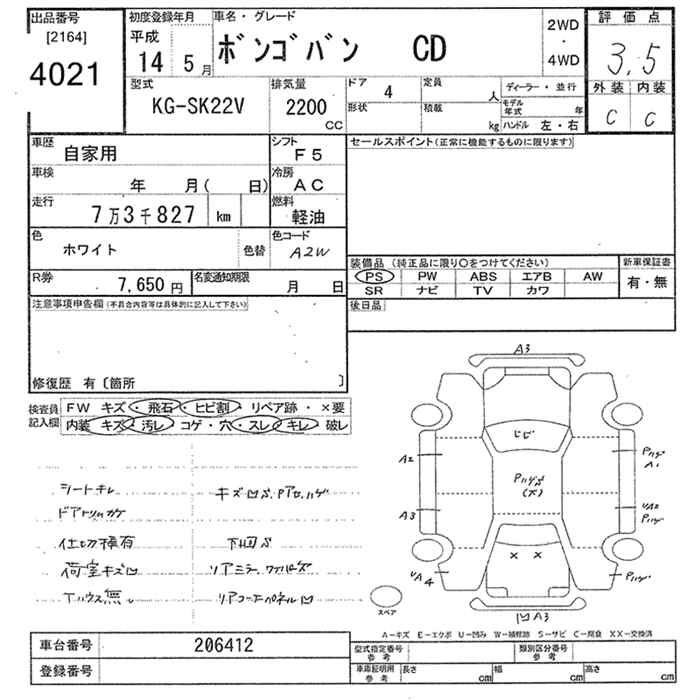 出品番号
[2164]
4021
初度登録年月
平成
14年 5月
車名・グレード
ボンゴバン CD
2WD
・
4WD
評価点
3.5
外装 内装
C C
型式
KG-SK22V
排気量
2200
CC
ドア
4
形状
定員
人
積載
kg
ディーラー・並行
モデル年式 年
ハンドル 左・右
車歴
自家用
シフト
F5
車検
年 月( 日)
冷房
AC
走行
7万3千827 km
燃料
軽油
色
ホワイト
色替
色コード
A2W
R券
7,650円
名変通知期限
月 日
セールスポイント(正常に機能するものに限ります)
装備品 (純正品に限り○をつけてください)
PS PW ABS エアB AW
SR ナビ TV カワ
新車保証書
有・無
後日品
注意事項申告欄(不具合内容等は具体的に記入して下さい)
修復歴 有〔箇所 〕
検査員記入欄
FW キズ・飛石・ヒビ割・リペア跡・×要
内装 キズ・汚レ コゲ・穴・スレ・キレ 破レ
シートキレ
キズ凹
仕切棒有
下凹
荷室キズ凹
無
A3
A2
A1
A3
UA2
UA4
凹A3
スペア
A-キズ E-エクボ U-凹み W-補修跡 S-サビ C-腐食 XX-交換済
車台番号
206412
登録番号
型式指定番号
参考
類別区分番号
参考
車庫証明用
参考
長さ cm 幅 cm 高さ cm